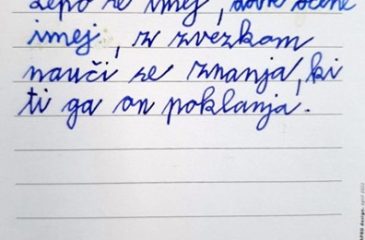 Lepo se imej, dobre ocene
imej, z zvezkom
nauči se znanja, ki
ti ga on poklanja.